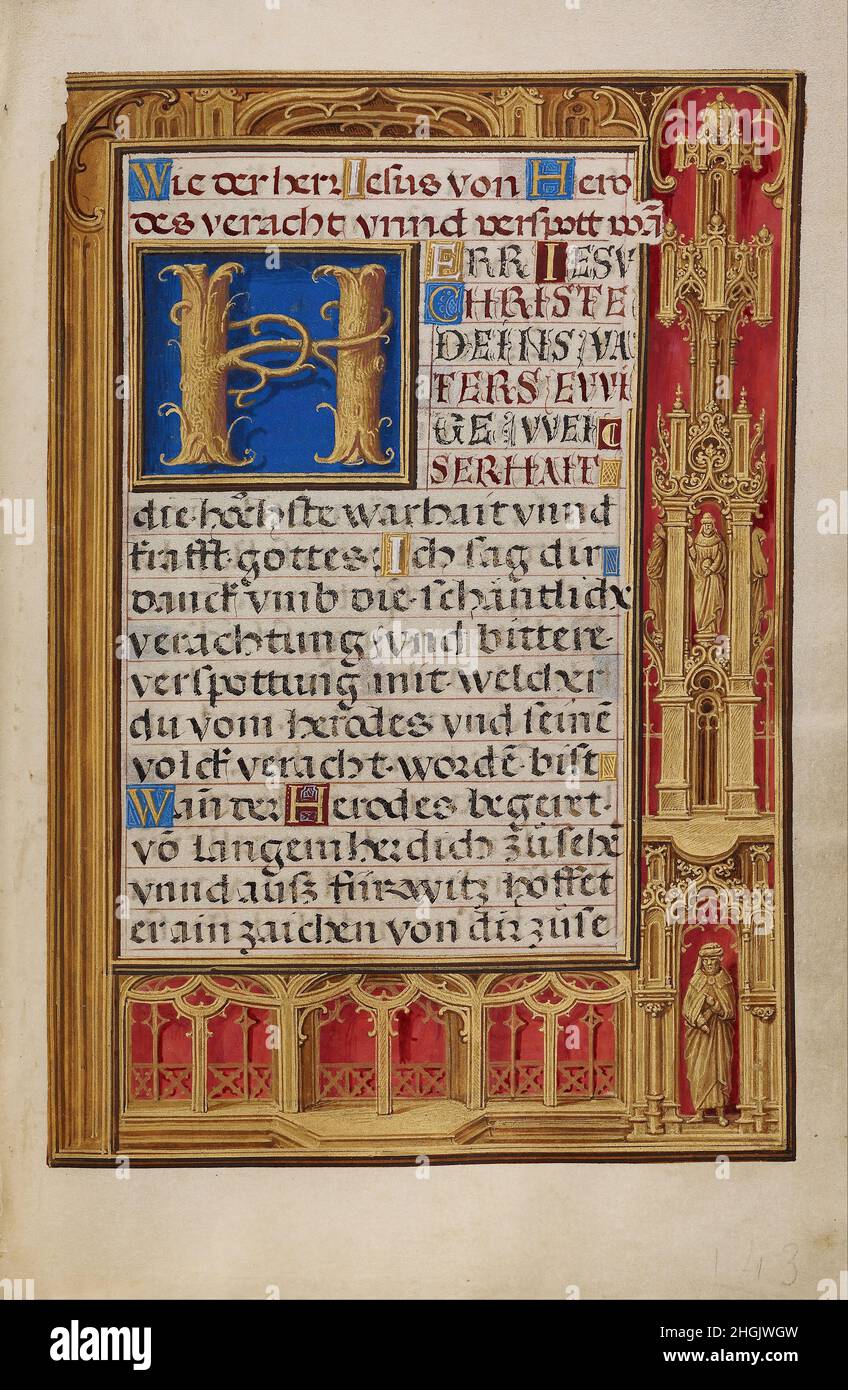 Wie der herr Iesus von Hero
des veracht vnnd verspott wā
HERR IESV
CHRISTE
DEINS VA
TERS EVVI
GE VVEIC
SERHAIT
die höchste warhait vnnd
krafft gottes Ich sag dir
danck vmb die schäntlich
verachtung vnd bittere
verspottung mit welcher
du vom herodes vnd seinē
volck veracht wordē bist
Wañ der Herodes begeret
vō langem her dich zu sehē
vnnd ausz fürwitz hoffet
er ain zaichen von dir zu se
143
alamy
Image ID: 2HGJWGW
www.alamy.com